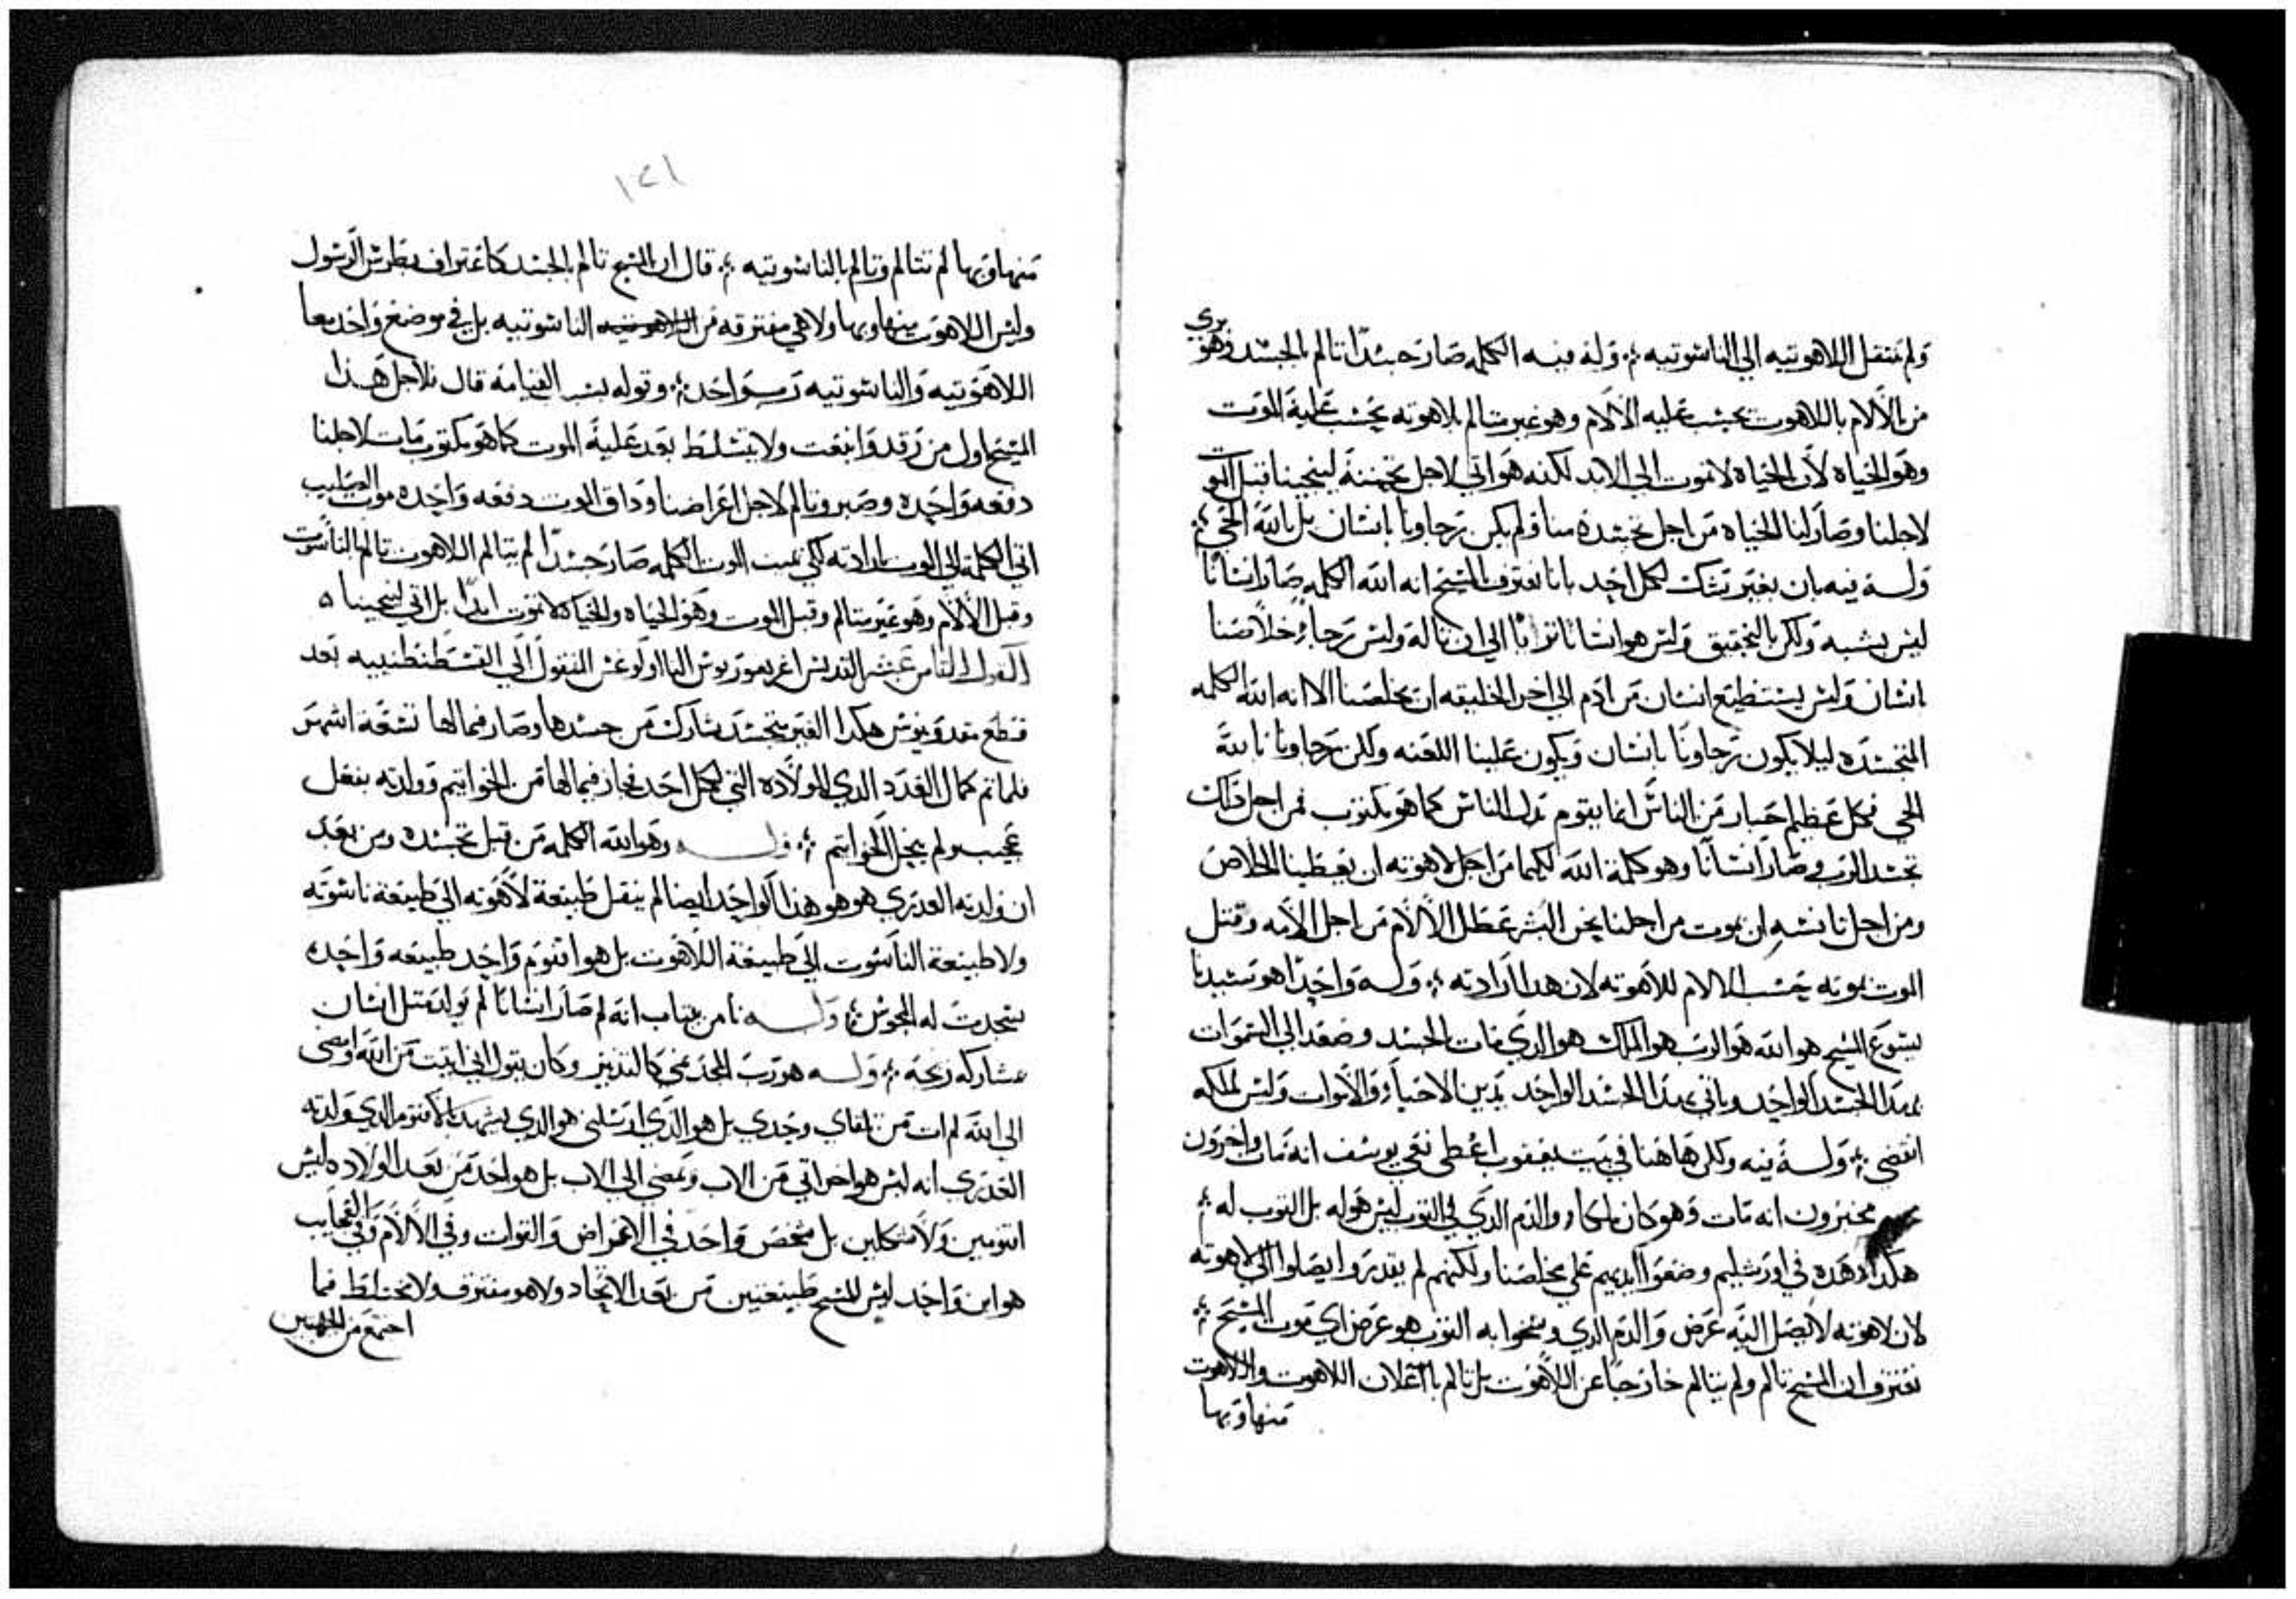 ولم تنتقل اللاهوتيه الي الناسوتيه ⁘ وله فيه الكلمه صار جسدا تالم بالجسد وهو بري
من الالام باللاهوت يحسب عليه الالام وهو غير متالم بلاهوته يحسب عليه الموت
وهو الحياه لان الحياه لا تموت الي الابد لكنه هو اتي لاجل تحننه لينجينا قبل الموت
لاجلنا وصار لنا الحياه من اجل تجسده منا ولم يكن رجاونا بانسان بل بالله الحي ⁘
وله فيه بان بغير شك لكل احد باننا نعترف بالمسيح انه الله الكلمه صار انسانا
ليس بشبه ولكن بالتحقيق وليس هو انسانا الي ان تاله وليس رجا خلاصنا
انسان وليس يستطيع انسان من ادم الي اخر الخليقه ان يخلصنا الا انه الله الكلمه
المتجسده ليلا يكون رجاونا بانسان ويكون علينا اللعنه ولكن رجاونا بالله
الحي فكل عظيم احبار من الناس انما يقوم بدل الناس كما هو مكتوب فمن اجل ذلك
تجسد الرب وصار انسانا وهو كلمة الله لكيما من اجل لاهوته ان يعطينا الخلاص
ومن اجل تانسه ان يموت من اجلنا نحن البشر عطل الالام من اجل الامه وقتل
الموت بموته يحسب الالام للاهوته لان هذا ارادته ⁘ وله واحدا هو سيدنا
يسوع المسيح هو الله هو الرب هو الملك هو الدي مات بالجسد وصعد الي السموات
بهدا الجسد الواحد وياتي بهدا الجسد الواحد يدين الاحياء والاموات وليس لملكه
انقضي ⁘ وله فيه ولكن هاهنا في بيت يعقوب اعطي نقي يوسف انه مات واخرون
مخبرون انه مات وهو كان والدم الدي في التوب ليس هو له بل التوب له ⁘
هكدا هده في اورشليم وضعوا ايديهم علي مخلصنا ولكنهم لم يقدروا يصلوا الي لاهوته
لان لاهوته لا يصل اليه عرض والدم الدي وسخوا به التوب هو عرض اي موت المسيح ⁘
نعترف ان المسيح تالم ولم يتالم خارجا عن اللاهوت بل تالم باعلان اللاهوت واللاهوت
منها وبها
١٢١
منها وبها لم تتالم وتالم بالناسوتيه ⁘ قال ان المسيح تالم بالجسد كاعتراف بطرس الرسول
وليس اللاهوت منها وبها ولا هي مفترقه من اللاهوتيه الناسوتيه بل في موضع واحد معا
اللاهوتيه والناسوتيه رب واحد ⁘ وقوله بسبب القيامه قال فلاجل هذا
المسيح اول من رقد وانبعت ولا يتسلط بعد عليه الموت كما هو مكتوب مات لاجلنا
دفعه واحده وصبر وتالم لاجل اغراضنا وداق الموت دفعه واحده موت الصليب
اتي الكلمه الي الموت بارادته لكي يميت الموت الكلمه صار جسدا لم يتالم اللاهوت تالم بالناسوت
وقبل الالام وهو غير متالم وقبل الموت وهو الحياه والحياه لا تموت ابدا بل اتي لينجينا ه
القول التامن عشر القديس اغريغوريوس التااولوغس المنقول الي القسطنطينيه بعد
قطع مقدونيوس هكدا الغير متجسد شارك من جسدها وصار فيما لها تسعة اشهر
فلما تم كمال العدد الدي للولاده التي لكل احد فجاز فيما لها من الخواتيم وولدته بفعل
عجيب ولم يحل الخواتيم ⁘ وله وهو الله الكلمه من قبل تجسده ومن بعد
ان ولدته العدري هو هو هذا الواحد ايضا لم ينقل طبيعة لاهوته الي طبيعة ناسوته
ولا طبيعة الناسوت الي طبيعة اللاهوت بل هو اقنوم واحد طبيعه واحده
سجدت له المجوس ⁘ وله انه لم صار انسانا لم يولد مثل انسان
بمشاركه زيجه ⁘ وله هو رب المجد وكان يقول اني اتيت من الله وامضي
الي الله لم ات من تلقاي وحدي بل هو الدي ارسلني هو الدي يشهد بالاقنوم الدي ولدته
العدري انه ليس هو اخر اتي من الاب ويمضي الي الاب بل هو واحد من بعد الولاده ليس
اقنومين ولا شكلين بل شخص واحد في الاعراض والقوات وفي الالام وفي العجايب
هو ابن واحد ليس للمسيح طبيعتين من بعد الاتحاد ولا هو مفترق ولا مختلط فيما
اجتمع من الجهتين